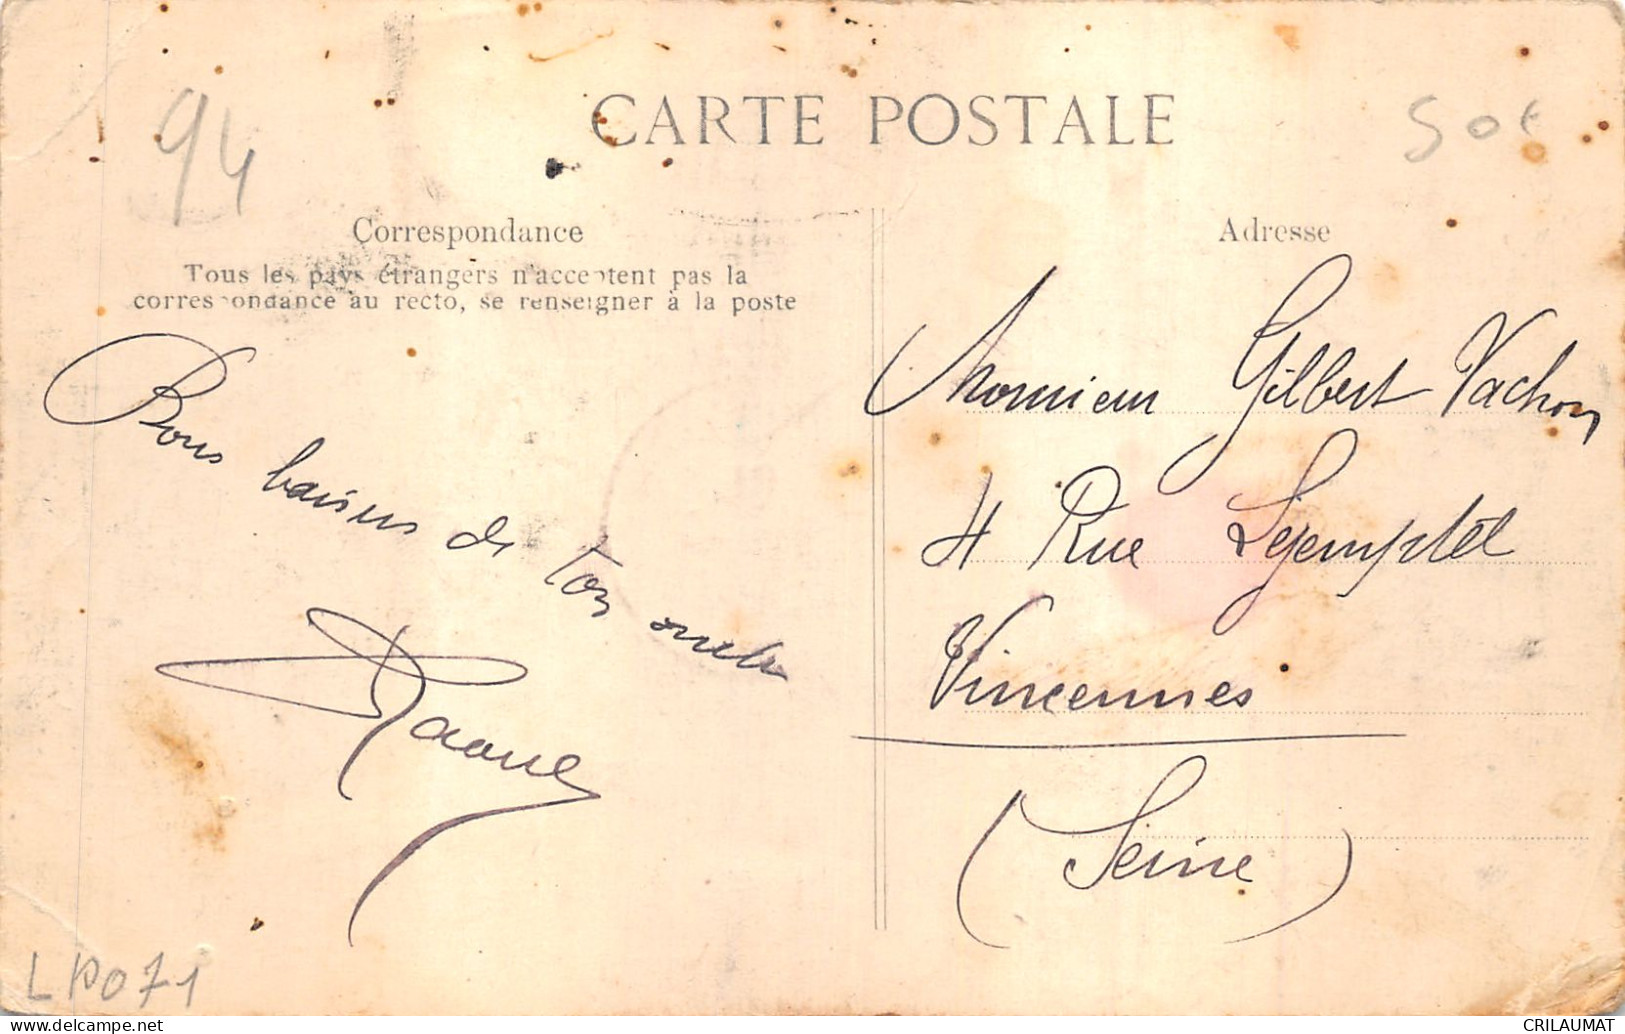 94
CARTE POSTALE
50€
Correspondance
Tous les pays étrangers n'acceptent pas la
correspondance au recto, se renseigner à la poste
Bons baisers de ton oncle
Raoul
Adresse
Monsieur Gilbert Vachon
4 Rue Lejemptel
Vincennes
(Seine)
LP071
CRILAUMAT